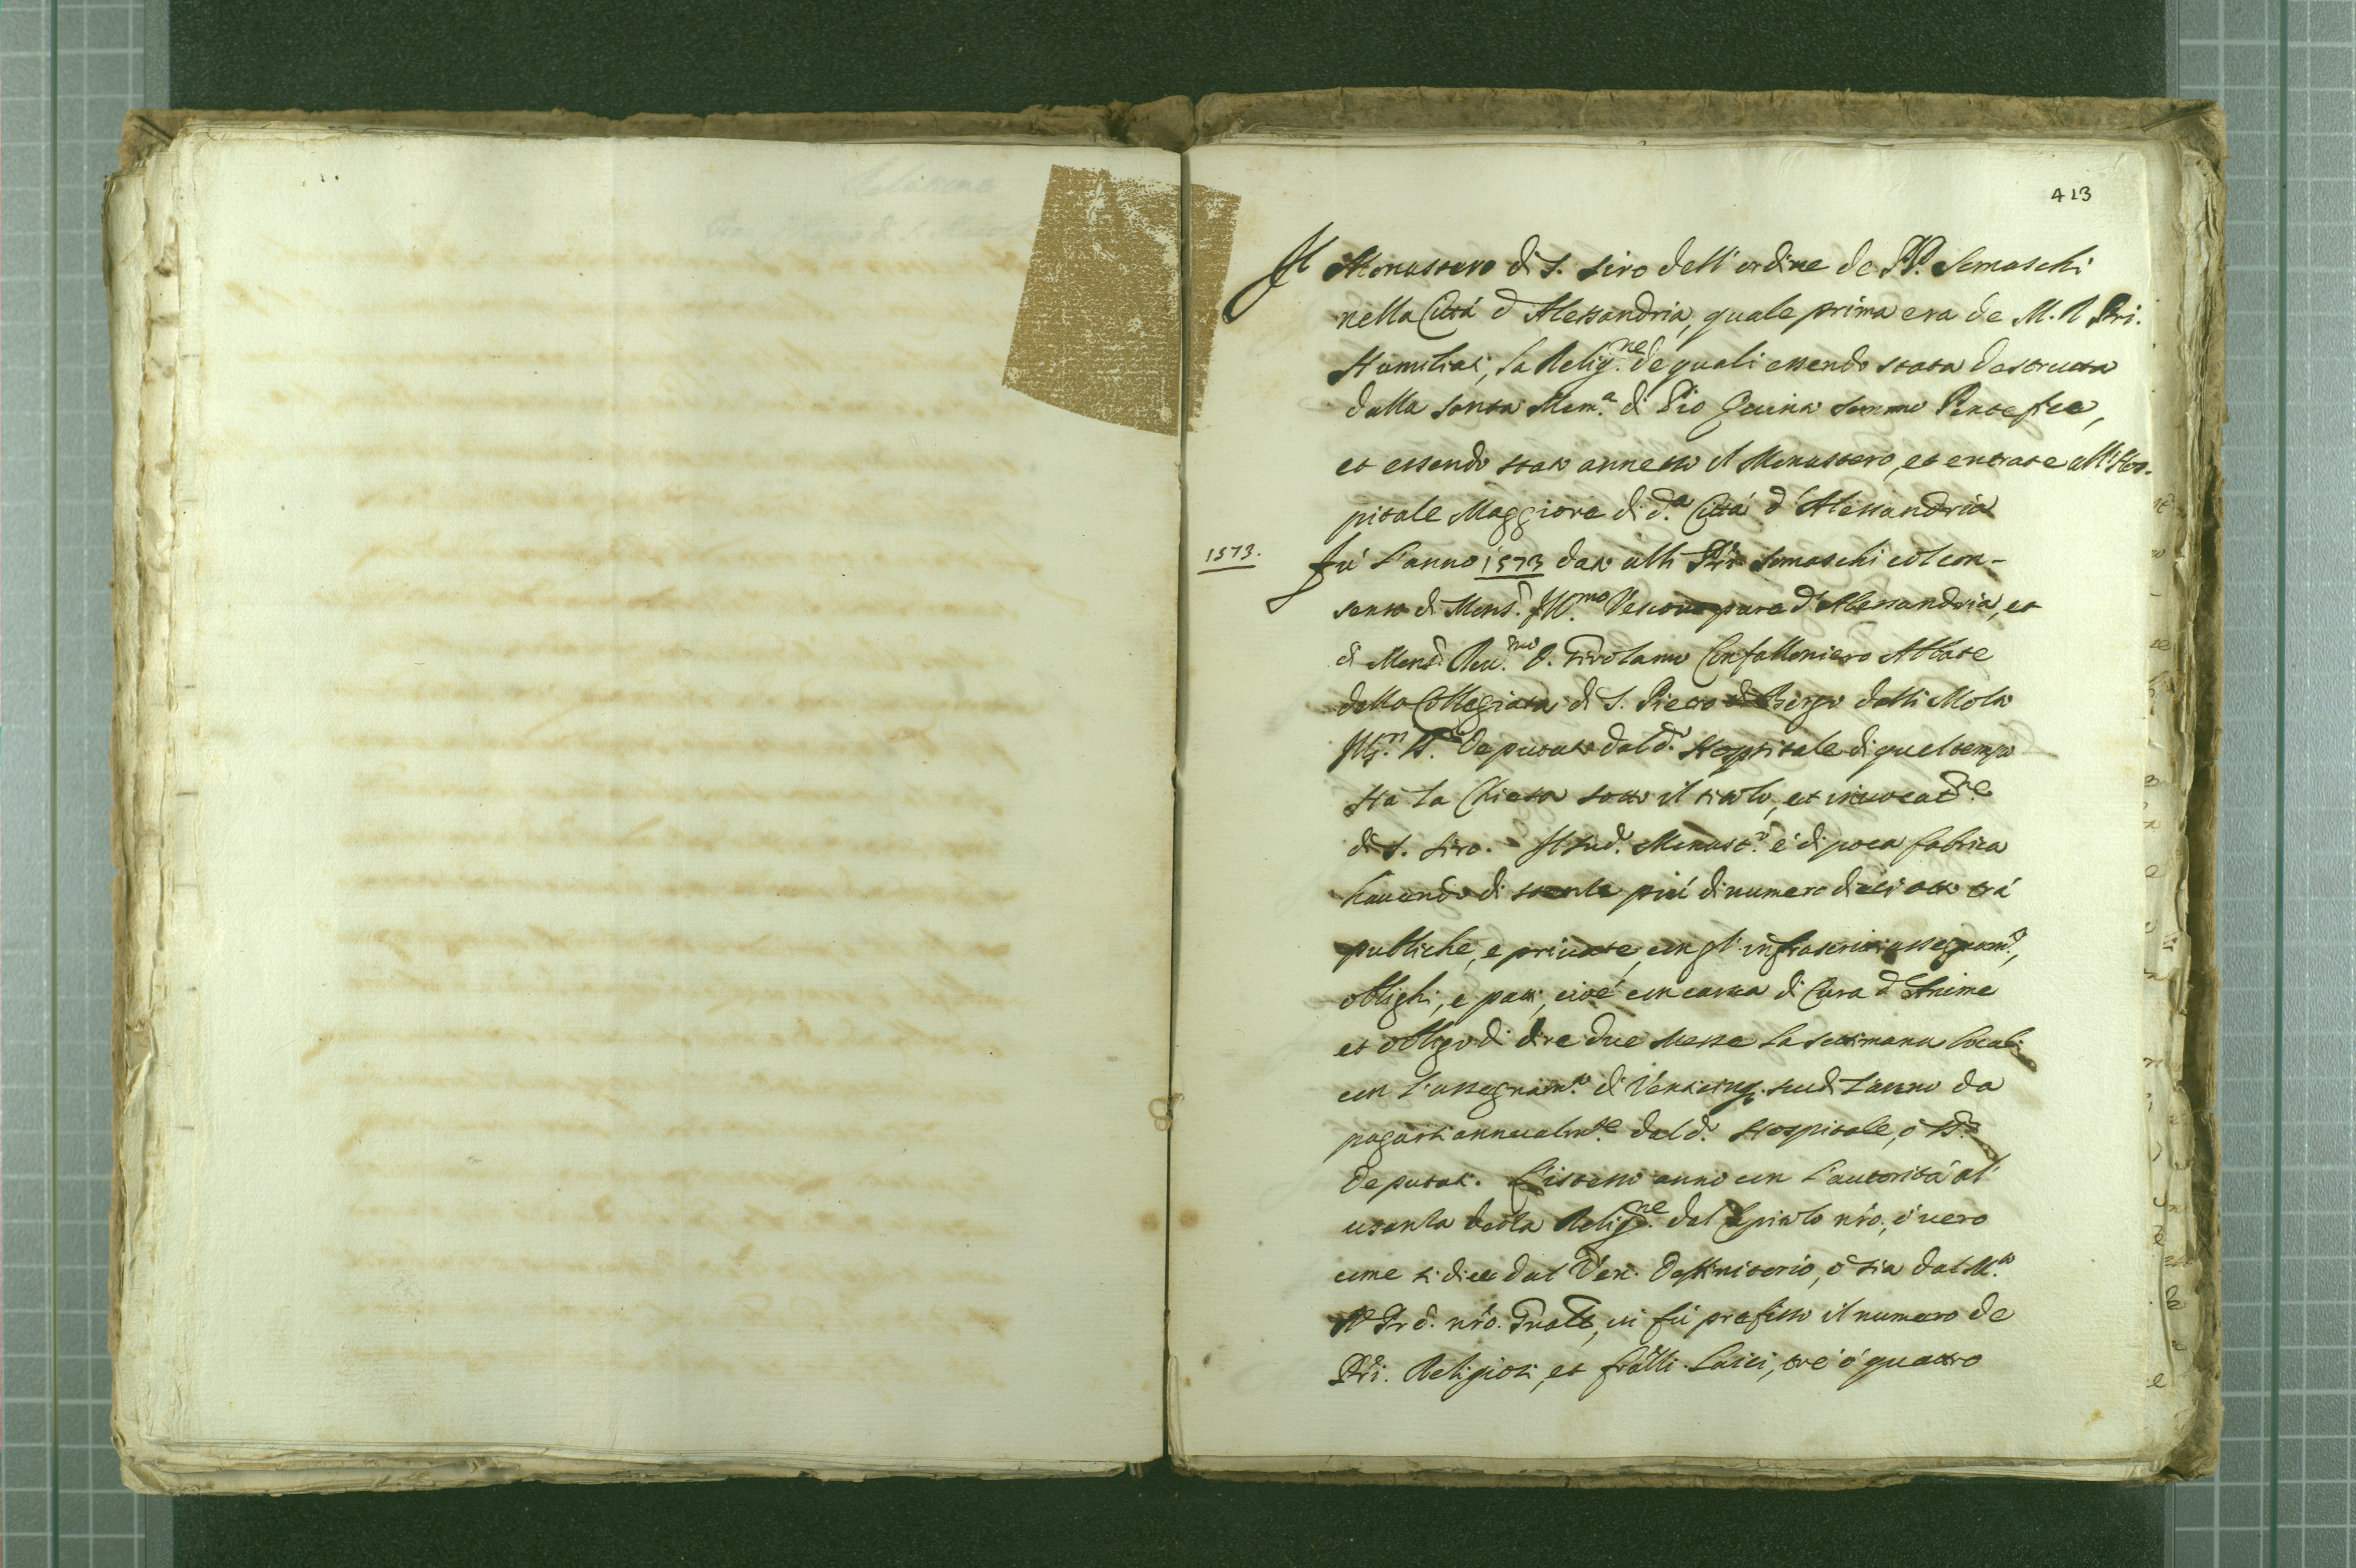 413
Il Monastero di S. Siro dell'ordine de PP. Somaschi
nella Città d'Alessandria, quale prima era de M. R. Pri.
Humiliati, la Relig.ne de quali essendo stata destrutta
dalla santa Mem.a di Pio Quinto sommo Pontefice,
et essendo stato annesso il Monastero, et entrate all'Hos-
pitale Maggiore di d.a Città d'Alessandria
1573.
fù l'anno 1573 dato alli Pri Somaschi col con-
senso di Mons.r Ill.mo Vescovo pure d'Alessandria, et
di Mons.r Rev.mo D. Girolamo Confalloniero Abbate
della Collegiata di S. Pietro di Bergo delli Molti
Ill.ri SS.ri Deputati dal d.o Hospitale di quel tempo
Hà la Chiesa sotto il titolo, et invocat.ne
di S. Siro. Il sud.o Monast.o è di poca fabrica
havendo di stanze più di numero dieci otto trà
publiche, e private, con gl'infrascritti assegnam.ti,
oblighi, e patti, cioè con carica di Cura d'Anime
et obligo di dire due Messe la settimana locali
con l'assegnam.to di Venticinq. scudi l'anno da
pagarsi annualm.te dal d.o Hospitale, ò SS.ri
Deputati. L'istesso anno con l'autorità al
usanza della Relig.ne del Capitolo nro., ò vero
come si dice dal Ven. Deffinitorio, ò sia dal M.to
R. Pre. nro. Gnale, vi fù prefisso il numero de
Pri. Religiosi, et fratlli Laici, trè ò quattro